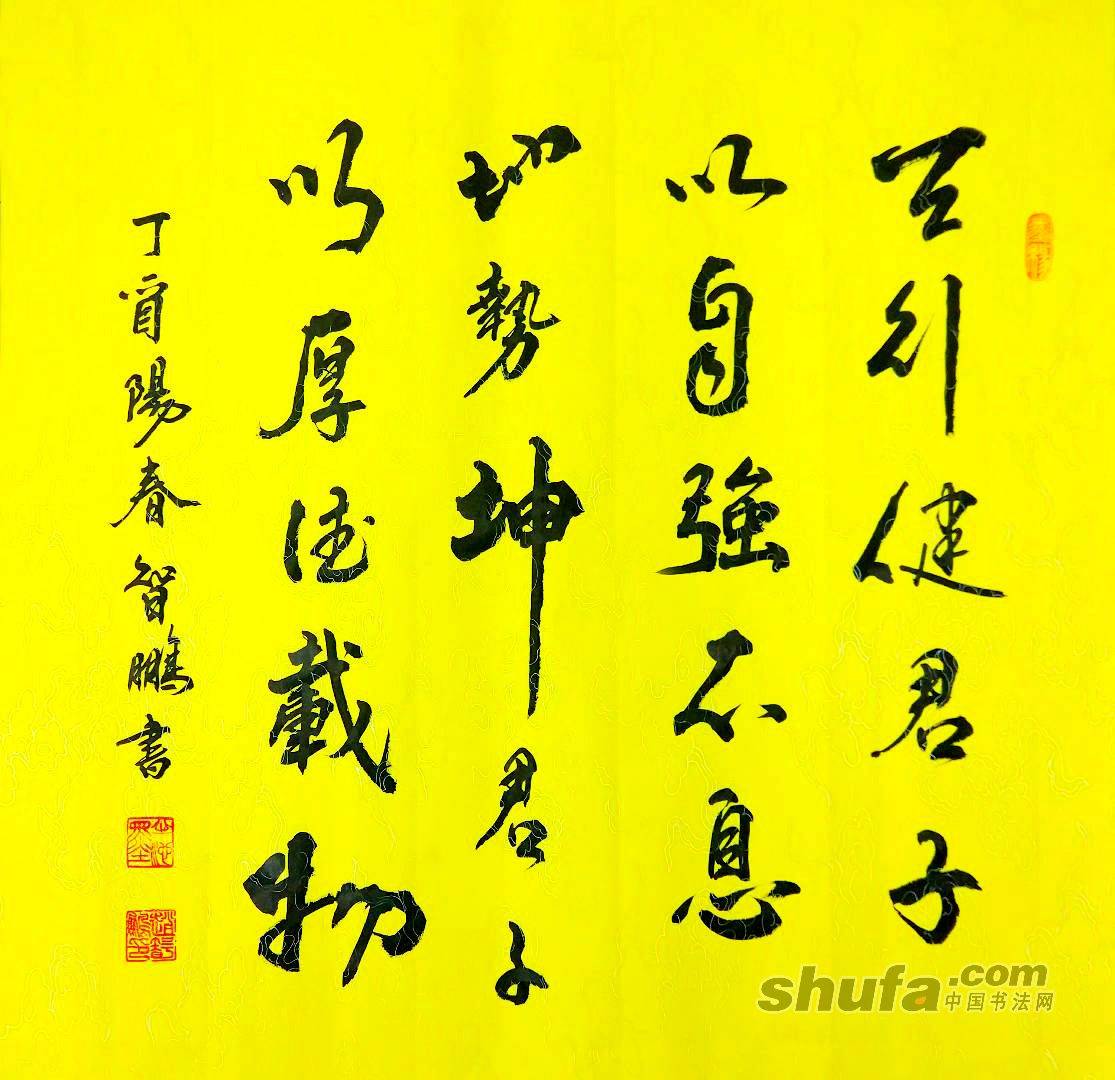 天行健君子
以自強不息
地勢坤君子
以厚德載物
丁酉陽春智鵬書
shufa.com
中国书法网